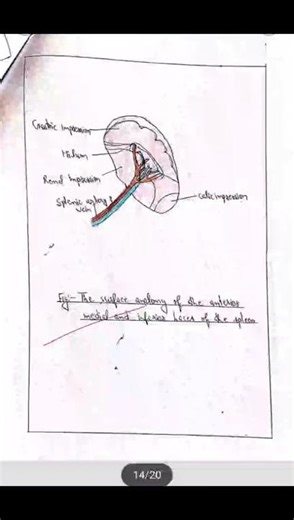 Gastric Impression
Hilum
Renal Impression
Splenic artery &
vein
Colic impression
Fig:- The surface anatomy of the anterior
medial and inferior faces of the spleen
14/20